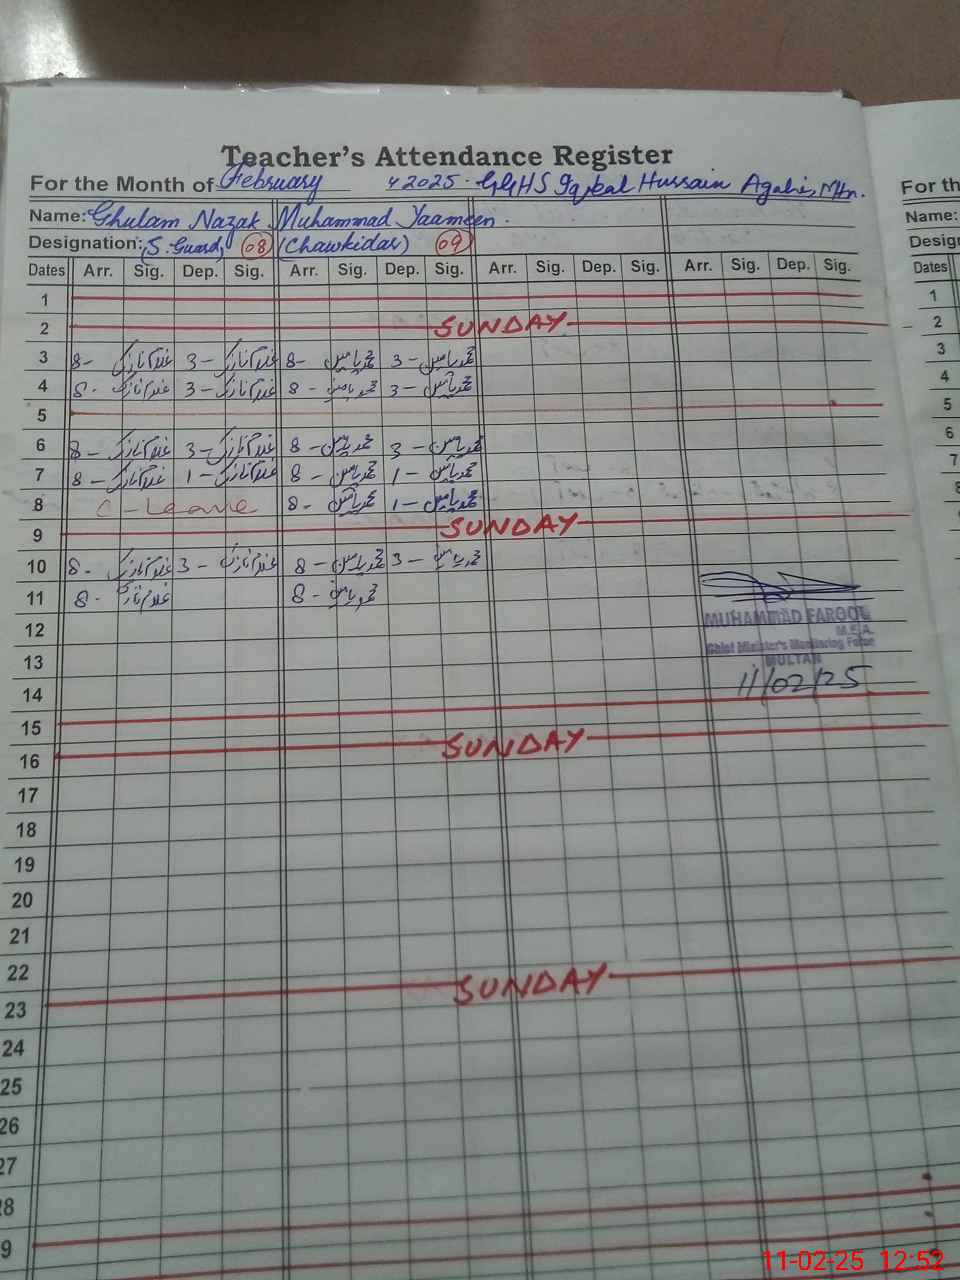 Teacher's Attendance Register
For the Month of February 2025. GGHS Iqbal Hussain Agahi, Mtn.
Name: Ghulam Nazak Muhammad Yaameen.
Designation: S. Guard 08 (Chawkidar) 09
Dates Arr. Sig. Dep. Sig. Arr. Sig. Dep. Sig. Arr. Sig. Dep. Sig. Arr. Sig. Dep. Sig.
1
2 SUNDAY
3 8- غلام نازک 3- غلام نازک 8- محمد یامین 3- محمد یامین
4 8- غلام نازک 3- غلام نازک 8- محمد یامین 3- محمد یامین
5
6 8- غلام نازک 3- غلام نازک 8- محمد یامین 3- محمد یامین
7 8- غلام نازک 1- غلام نازک 8- محمد یامین 1- محمد یامین
8 C-Leave 8- محمد یامین 1- محمد یامین
9 SUNDAY
10 8- غلام نازک 3- غلام نازک 8- محمد یامین 3- محمد یامین
11 8- غلام نازک 8- محمد یامین
12 MUHAMMAD FAROOQ
M.E.A.
13 Chief Minister's Monitoring Force
MULTAN
14 11/02/25
15
16 SUNDAY
17
18
19
20
21
22
23 SUNDAY
24
25
26
27
28
9
For th
Name:
Desig
Dates
1
2
3
4
5
6
7
8
11-02-25 12:52